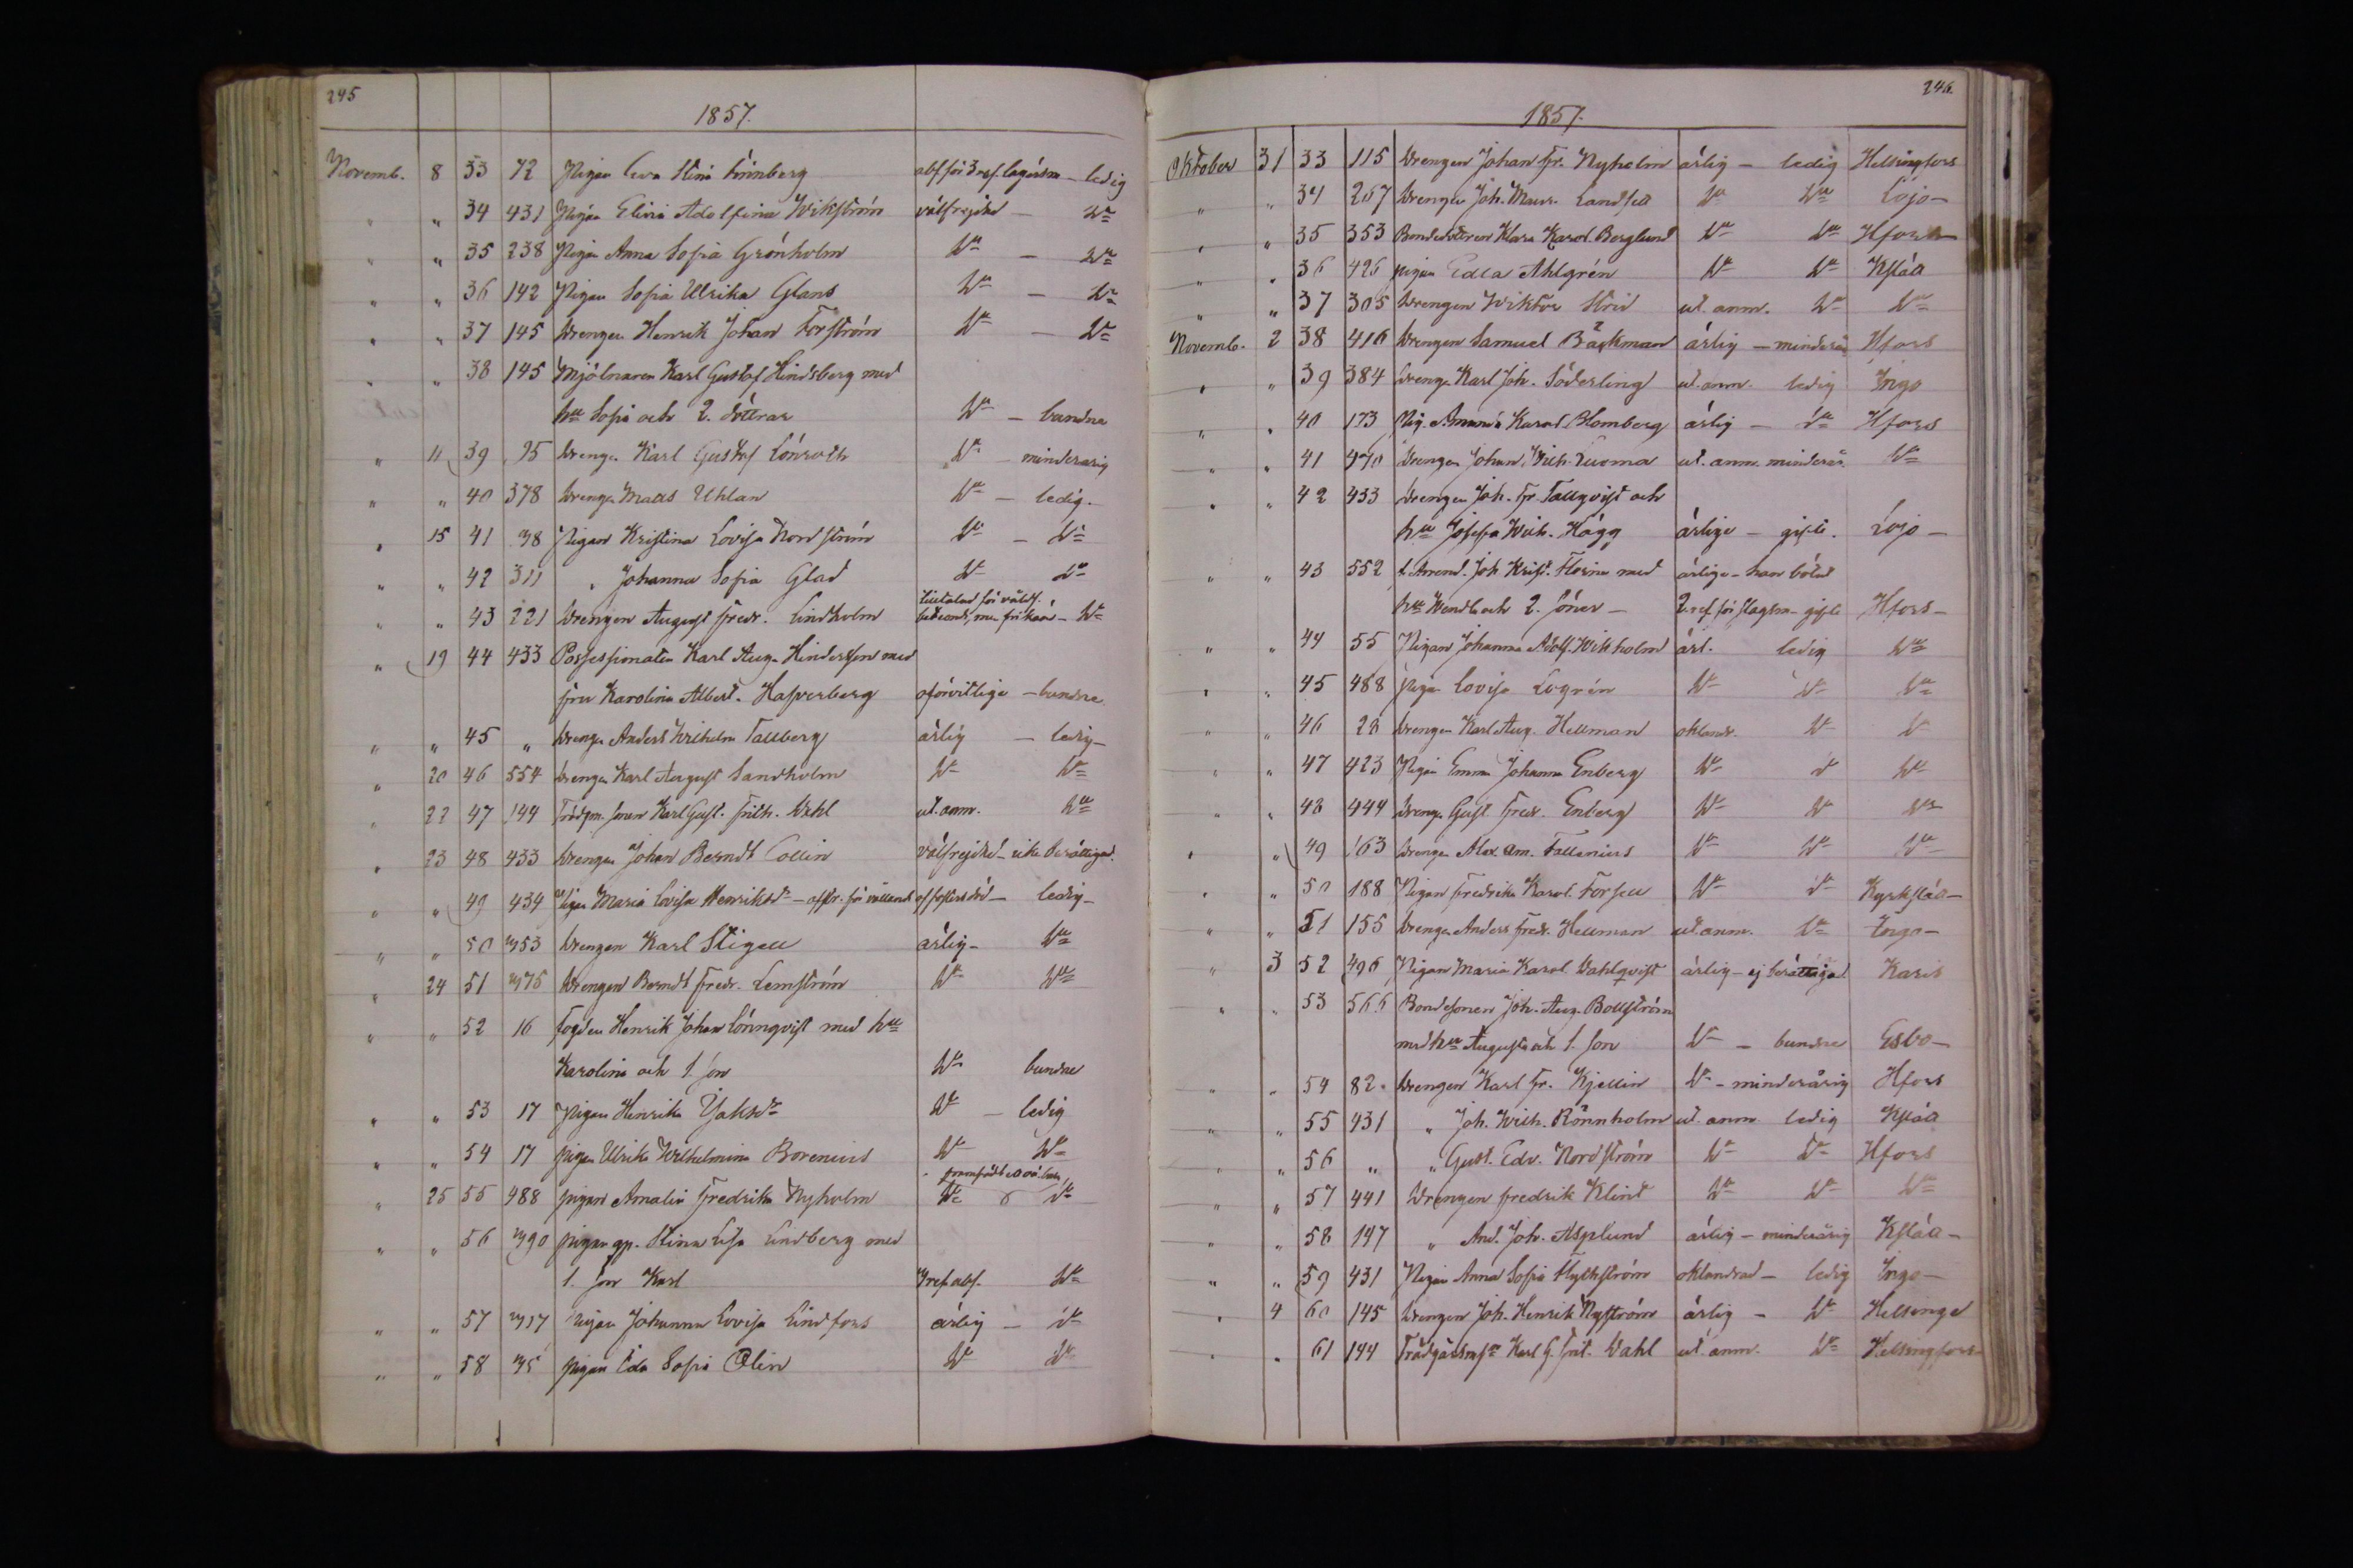 245
1857.
Novemb. 8 33 72 Pigan Eva Stina Finnberg abs. för 3 res. lägersm. - ledig
" " 34 431 Pigan Elina Adolfina Wikström välfrejdad - do
" " 35 238 Pigan Anna Sofia Grönholm do - do
" " 36 142 Pigan Sofia Ulrika Glans do - do
" " 37 145 Drengen Henrik Johan Forström do - do
" " 38 145 Mjölnaren Karl Gustaf Hindsberg med
hu Sofia och 2. döttrar do - bundna
" 11 39 95 Drengen Karl Gustaf Lönroth do minderårig
" " 40 378 Drengen Matts Uhlan do - ledig.
" 15 41 38 Pigan Kristina Lovisa Nordström do - do
" " 42 311 " Johanna Sofia Glad do do
" " 43 221 Drengen August Fredr. Lindholm men frikänd - do
" 19 44 433 Possessionaten Karl Aug. Hindersson med
fru Karolina Albert. Hasperberg oförvitlige - bundna
" " 45 " Drengen Anders Wilhelm Tallberg ärlig - ledig -
" 20 46 554 Drengen Karl August Sandholm do do
" 22 47 144 Trädgm. sonen Karl Gust. Frith. Wahl ut. anm. do
" 23 48 433 Drengen Johan Berndt Collin välfrejdad - icke berättigad.
" " 49 434 Pigan Maria Lovisa Henriksdr - för af fosterdråp - ledig -
" " 50 m53 Drengen Karl Stigell ärlig - do
" 24 51 m75 Drengen Berndt Fredr. Lemström do do
" " 52 16 Fogden Henrik Johan Lönnqvist med hu
Karolina och 1. son do bundne
" " 53 17 Pigan Henrika Jaksdr do - ledig
" " 54 17 pigan Ulrika Wilhelmina Borenius do do
framfödt barn
" 25 55 488 pigan Amalia Fredrika Nyholm do do
" " 56 m90 pigan Stina Lisa Lindberg med
1. son Karl res. abs. do
" " 57 m17 pigan Johanna Lovisa Lindfors ärlig - do
" " 58 m5 pigan Eda Sofia Olin do do
246.
1857.
Oktober 31 33 115 Drengen Johan Fr. Nyholm ärlig - ledig Helsingfors
" " 34 267 Drengen Joh. Maur. Landsell do do Lojo -
" " 35 353 Bondedottren Klara Karol. Berglund do do Hfors
" " 36 426 pigan Edla Ahlgrén do do Kslätt
" " 37 305 Drengen Wiktor Strid ut. anm. do do
Novemb. 2 38 416 Drengen Samuel Bäckman ärlig - minderår. Hfors
" " 39 384 Drengen Karl Joh. Söderling ut. anm. ledig Ingo
" " 40 173 Pig. Amanda Karol. Blomberg ärlig - do Hfors
" " 41 470 Drengen Johan Wilh. Tuoma ut. anm. minderår. do
" " 42 433 Drengen Joh. Fr. Tallqvist och
hu Josefa Wilh. Hägg ärlige - gifte. Lojo -
" " 43 552 f. Arrend. Joh. Krist. Florin med ärlige - han bötat
hu Wendla och 2. söner - 2. res. för slagsm. gifte Hfors -
" " 44 55 Pigan Johanna Adolf. Wikholm ärl. ledig do
" " 45 488 Pigan Lovisa Logrén do do do
" " 46 28 Drengen Karl Aug. Hellman oklandr. do do
" " 47 423 Pigan Emma Johanna Enberg do do do
" " 48 444 Drengen Gust Fredr. Enberg do do do
" " 49 163 Drengen Alex. Am. Tallenius do do do
" " 50 188 Pigan Fredrika Karol. Forsell do do Kyrkslätt -
" " 51 155 Drengen Anders Fredr. Hellman ut. anm. do Ingo -
" 3 52 496 Pigan Maria Karol. Wahlqvist ärlig - ej berättigad Karis
" " 53 566 Bondesonen Joh. Aug. Bollström
med hu Augusta och 1. son do - bundne Esbo -
" " 54 82 Drengen Karl Fr. Kjellin do - minderårig Hfors
" " 55 431 " Joh. Wilh. Rönnholm ut. anm. ledig Kslätt
" " 56 " " Gust. Edv. Nordström do do Hfors
" " 57 441 Drengen Fredrik Klint do do do
" " 58 147 " And. Joh. Asplund ärlig - minderårig Kslätt -
" " 59 431 Pigan Anna Sofia Flyckström oklandrad - ledig Ingo -
" 4 60 145 Drengen Joh. Henrik Nyström ärlig - do Helsinge
" " 61 144 Trädgårdsmsn Karl G. Frit. Wahl ut. anm. do Helsingfors